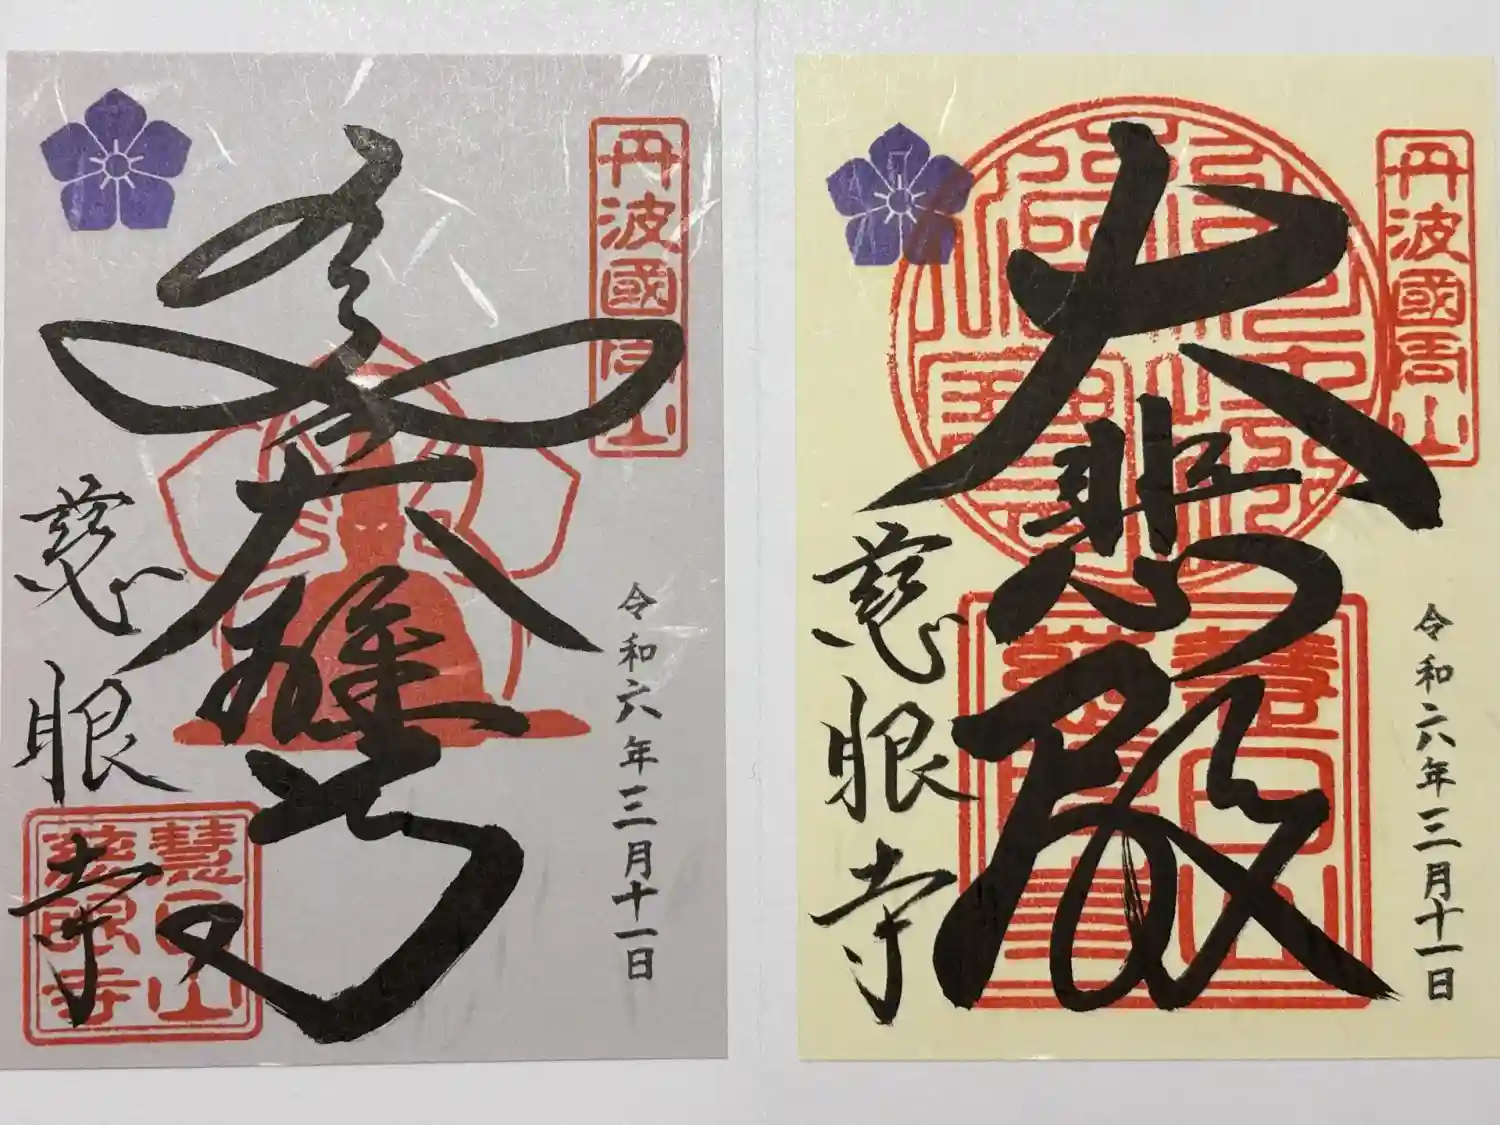 丹波國周山
大雄
令和六年三月十一日
慈眼寺
慧日山
慈眼寺
丹波國周山
大悲殿
令和六年三月十一日
慈眼寺
慧日山
慈眼寺